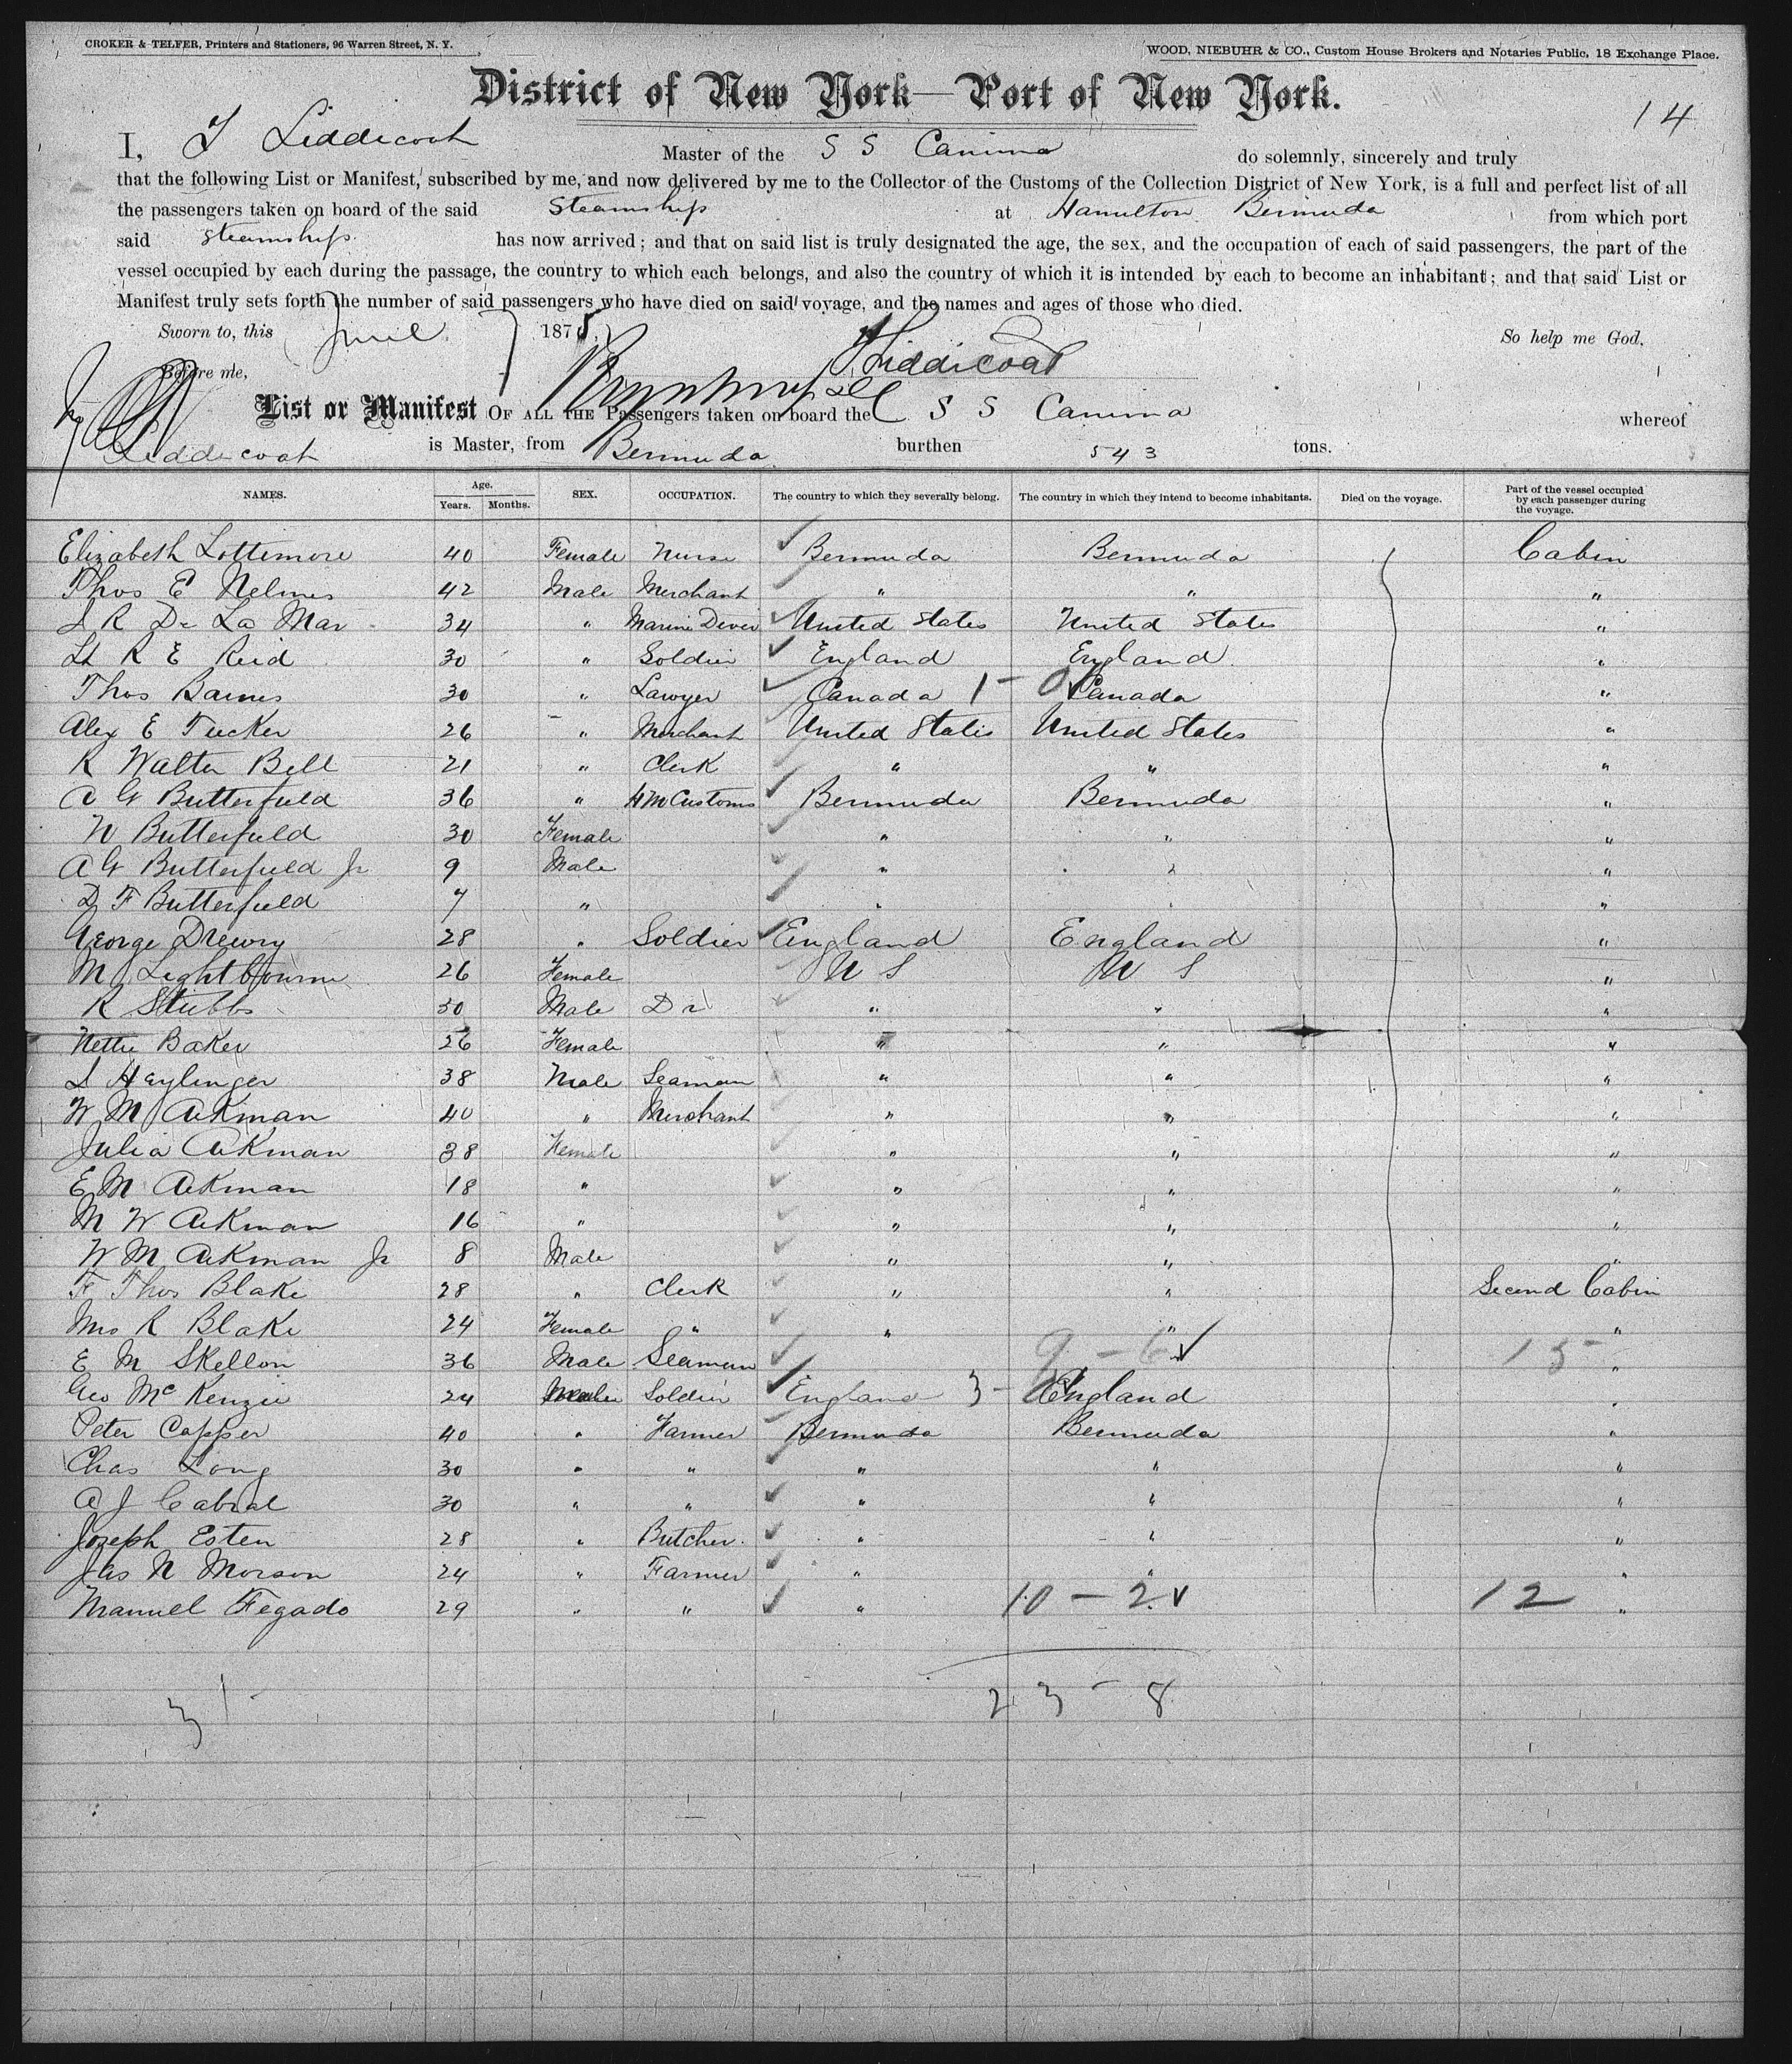 CROKER & TELFER, Printers and Stationers, 96 Warren Street, N. Y.
WOOD, NIEBUHR & CO., Custom House Brokers and Notaries Public, 18 Exchange Place.
District of New York—Port of New York.
14
I, T Liddicoat Master of the S S Canima do solemnly, sincerely and truly
that the following List or Manifest, subscribed by me, and now delivered by me to the Collector of the Customs of the Collection District of New York, is a full and perfect list of all
the passengers taken on board of the said Steamship at Hamilton Bermuda from which port
said Steamship has now arrived; and that on said list is truly designated the age, the sex, and the occupation of each of said passengers, the part of the
vessel occupied by each during the passage, the country to which each belongs, and also the country of which it is intended by each to become an inhabitant; and that said List or
Manifest truly sets forth the number of said passengers who have died on said voyage, and the names and ages of those who died.
Sworn to, this June 7 1875 So help me God,
Liddicoat
Before me,
List or Manifest OF ALL THE Passengers taken on board the S S Canima whereof
Liddicoat is Master, from Bermuda burthen 543 tons.
NAMES. Age. Years. Months. SEX. OCCUPATION. The country to which they severally belong. The country in which they intend to become inhabitants. Died on the voyage. Part of the vessel occupied by each passenger during the voyage.
Elizabeth Lottimore 40 Female Nurse Bermuda Bermuda Cabin
Thos E Nelmes 42 Male Merchant " " "
J R De La Mar 34 " Marine Diver United States United States "
Lt R E Reid 30 " Soldier England England "
Thos Barnes 30 " Lawyer Canada 1 - 0 Canada "
Alex E Tucker 26 " Merchant United States United States "
R Walter Bell 21 " Clerk " " "
A G Butterfield 36 " H M Customs Bermuda Bermuda "
N Butterfield 30 Female " " "
A G Butterfield Jr 9 Male " " "
D F Butterfield 7 " " " "
George Drewry 28 " Soldier England England "
M Lightbourne 26 Female U S U S "
R Stubbs 50 Male Dr " " "
Nettie Baker 26 Female " " "
S Heylinger 38 Male Seaman " " "
W M Aikman 40 " Merchant " " "
Julia Aikman 38 Female " " "
E M Aikman 18 " " " "
M W Aikman 16 " " " "
W M Aikman Jr 8 Male " " "
F Thos Blake 28 " Clerk " " Second Cabin
Mrs R Blake 24 Female " " " "
E M Skellon 36 Male Seaman 9 - 6 15 "
Geo McKenzie 24 Male Soldier England 3 - England "
Peter Copper 40 " Farmer Bermuda Bermuda "
Chas Long 30 " " " " "
A J Cabral 30 " " " " "
Joseph Esten 28 " Butcher " " "
Jas N Morson 24 " Farmer " " "
Manuel Fegado 29 " " " 10 - 2 12 "
31 23 - 8